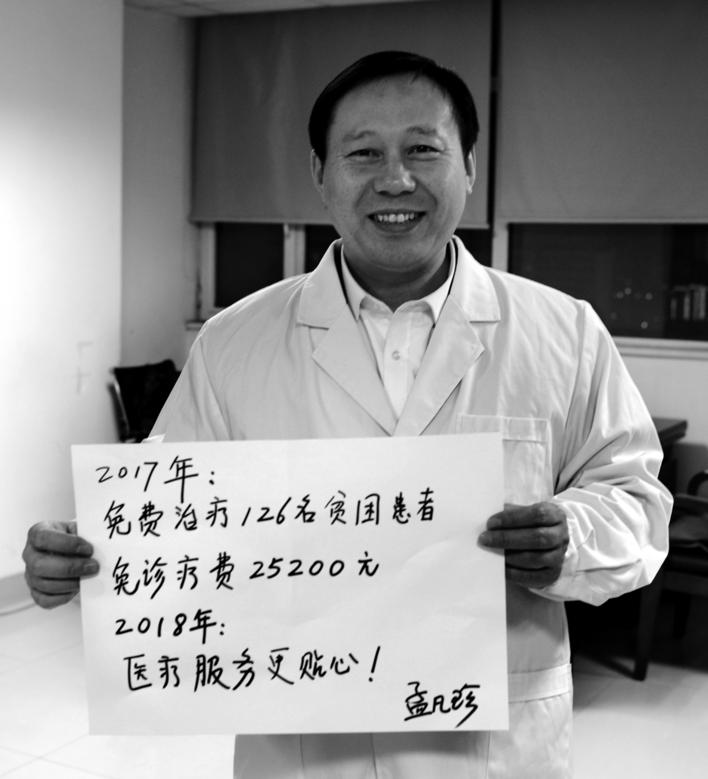 2017年：
免费治疗126名贫困患者
免诊疗费25200元
2018年：
医疗服务更贴心！
孟凡珍